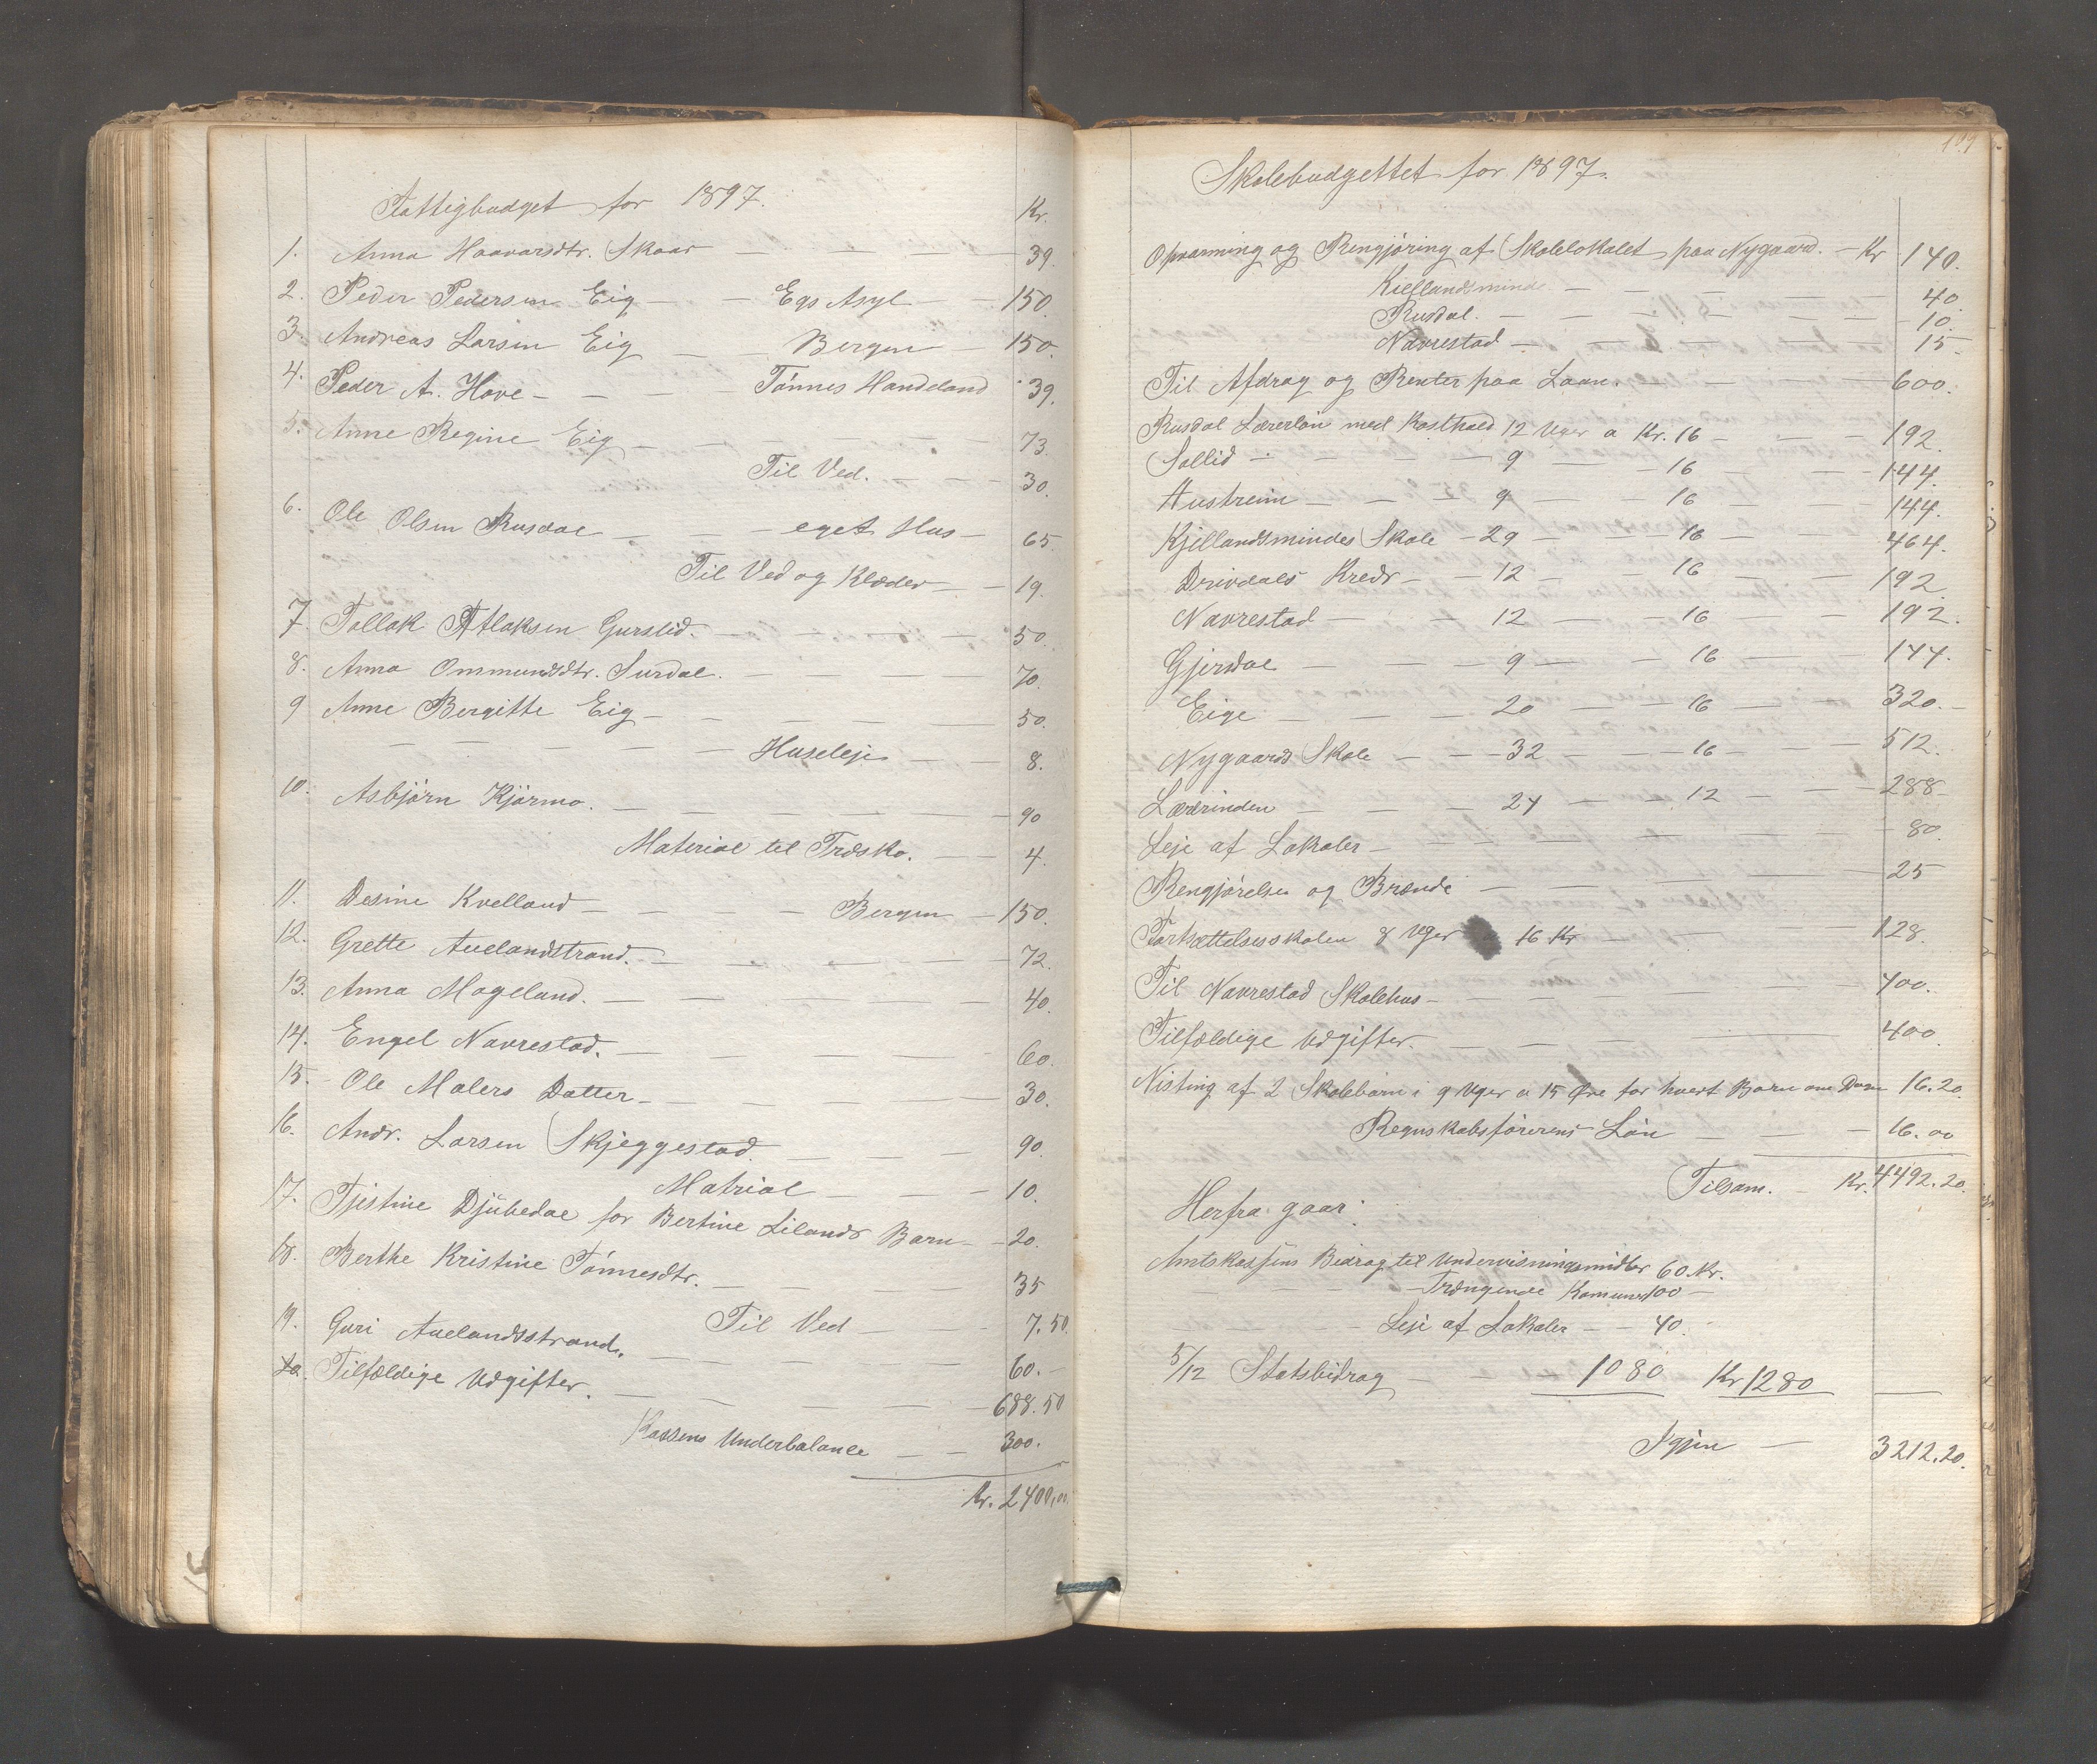 Fattigbudget for 1897.
Kr.
1. Anna Haavarsdtr. Skaar — — — — 39.
2. Peder Pedersen Eig — — Egs Asyl — 150.
3. Andreas Larsen Eig — — Bergen — 150.
4. Peder A. Hove — — — Tønnes Handeland 39.
5. Anne Regine Eig — — — — 73.
Til Ved. — — — 30.
6. Ole Olsen Rusdal — — — eget Hus — 65.
Til Ved og Klæder — — 19.
7. Tollak Atlaksen Gurslid. — — — — 50.
8. Anna Ommundsdtr. Surdal. — — — — 70.
9 Anne Bergitte Eig — — — — 50.
— — — — — Huseleje — — 8.
10. Asbjørn Kjørmo. — — — — — 90
Material til Træsko. — — 4.
11. Desine Kvelland — — — — Bergen — 150.
12. Grette Auelandstrand. — — — — 72.
13. Anna Mageland. — — — — 40.
14. Engel Navrestad. — — — — 60.
15. Ole Malers Datter — — — — 30.
16. Andr. Larsen Skjeggestad. — — — 90.
Matrial — — 10.
17. Tjistine Djubedal for Bertine Lilands Barn — 20.
18. Berthe Kristine Tønnesdtr. — — — — 35
Til Ved — — 7.50
19. Guri Auelandsstrand. — — — — 60.—
20. Tilfældige Udgifter. — — — — 688.50
Kassens Underbalance — — 300.
Kr. 2400,00
109
Skolebudgettet for 1897.
Opvarming og Rengjøring af Skolelokalet paa Nygaard. — Kr 140.
Kiellandsminde — — — — 40.
Rusdal. — — — — — 10.
Navrestad — — — — — 15
Til Afdrag og Renter paa Laan. — — — 600.
Rusdal Lærerløn med Kosthold 12 Uger a Kr. 16 — — — 192.
Sollid — — — — 9 — — 16 — — 144.
Austreim — — — 9 — — 16 — — 144.
Kjellandsmindes Skole — 29 — — 16 — — 464.
Drivdals Kreds — — 12 — — 16 — — 192.
Navrestad — — — 12 — — 16 — — 192.
Gjersdal — — — 9 — — 16 — — 144.
Eige — — — 20 — — 16 — — 320.—
Nygaards Skole — — 32 — — 16 — — 512.
Lærerinden — — — 24 — — 12 — — 288—
Leje af Lokaler — — — — — 80.
Rengjørelse og Brænde — — — — 25
Fortsættelsesskolen 8 Uger 16 Kr — — — 128.
Til Navrestad Skolehus — — — — 400.
Tilfældige Udgifter. — — — — 400.
Nisting af 2 Skolebørn i 9 Uger a 15 Øre for hvert Barn om Dagen 16.20.
Regnskabsførerens Løn — — — 16.00
Tilsam. — Kr. 4492.20.
Herfra gaar:
Amtskassens Bidrag til Undervisningsmidler 60 Kr.
— — — — Trængende Komuner 100 —
— — — — Leje af Lokaler — — 40.
5/12 Statsbidrag — — — 1080 Kr 1280
Igjen — 3212.20.